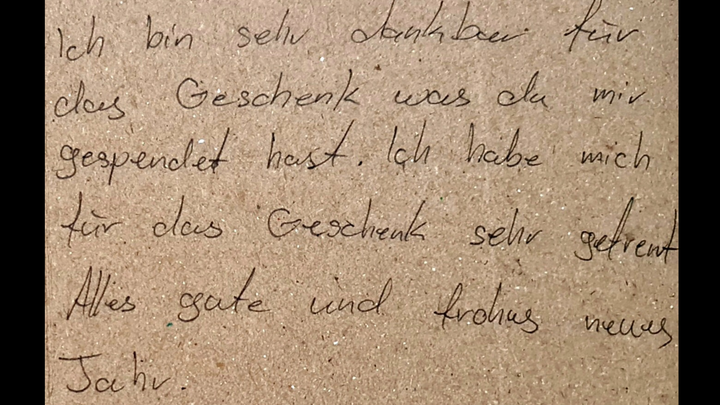 Ich bin sehr dankbar für
das Geschenk was du mir
gespendet hast. Ich habe mich
für das Geschenk sehr gefreut
Alles gute und frohes neues
Jahr.